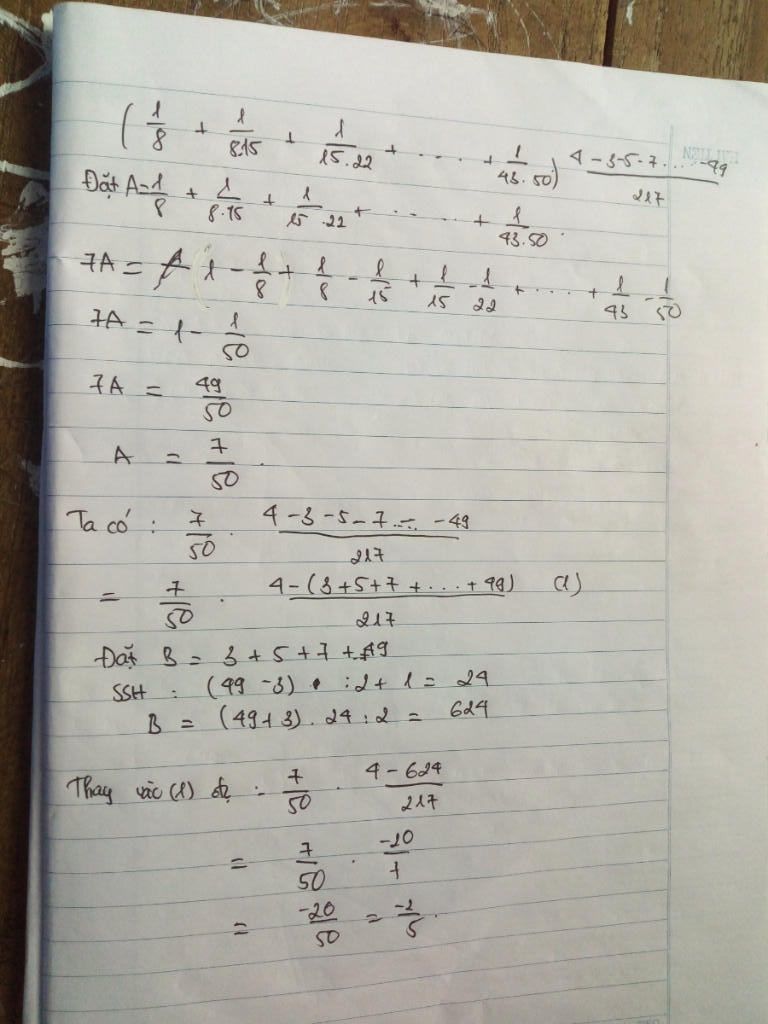 (1/8 + 1/8.15 + 1/15.22 + . . . . + 1/43.50) 4-3-5-7. . . . -49/217
Đặt A = 1/8 + 1/8.15 + 1/15.22 + . . . . . + 1/43.50.
7A = 1 - 1/8 + 1/8 - 1/15 + 1/15 - 1/22 + . . . . + 1/43 - 1/50
7A = 1 - 1/50
7A = 49/50
A = 7/50.
Ta có : 7/50 . 4-3-5-7 - ... -49/217
= 7/50 . 4-(3+5+7+...+49)/217 (1)
Đặt B = 3 + 5 + 7 + 49
SSH : (49-3) : 2 + 1 = 24
B = (49+3) . 24 : 2 = 624
Thay vào (1) : 7/50 . 4-624/217
= 7/50 . -20/7
= -20/50 = -2/5.